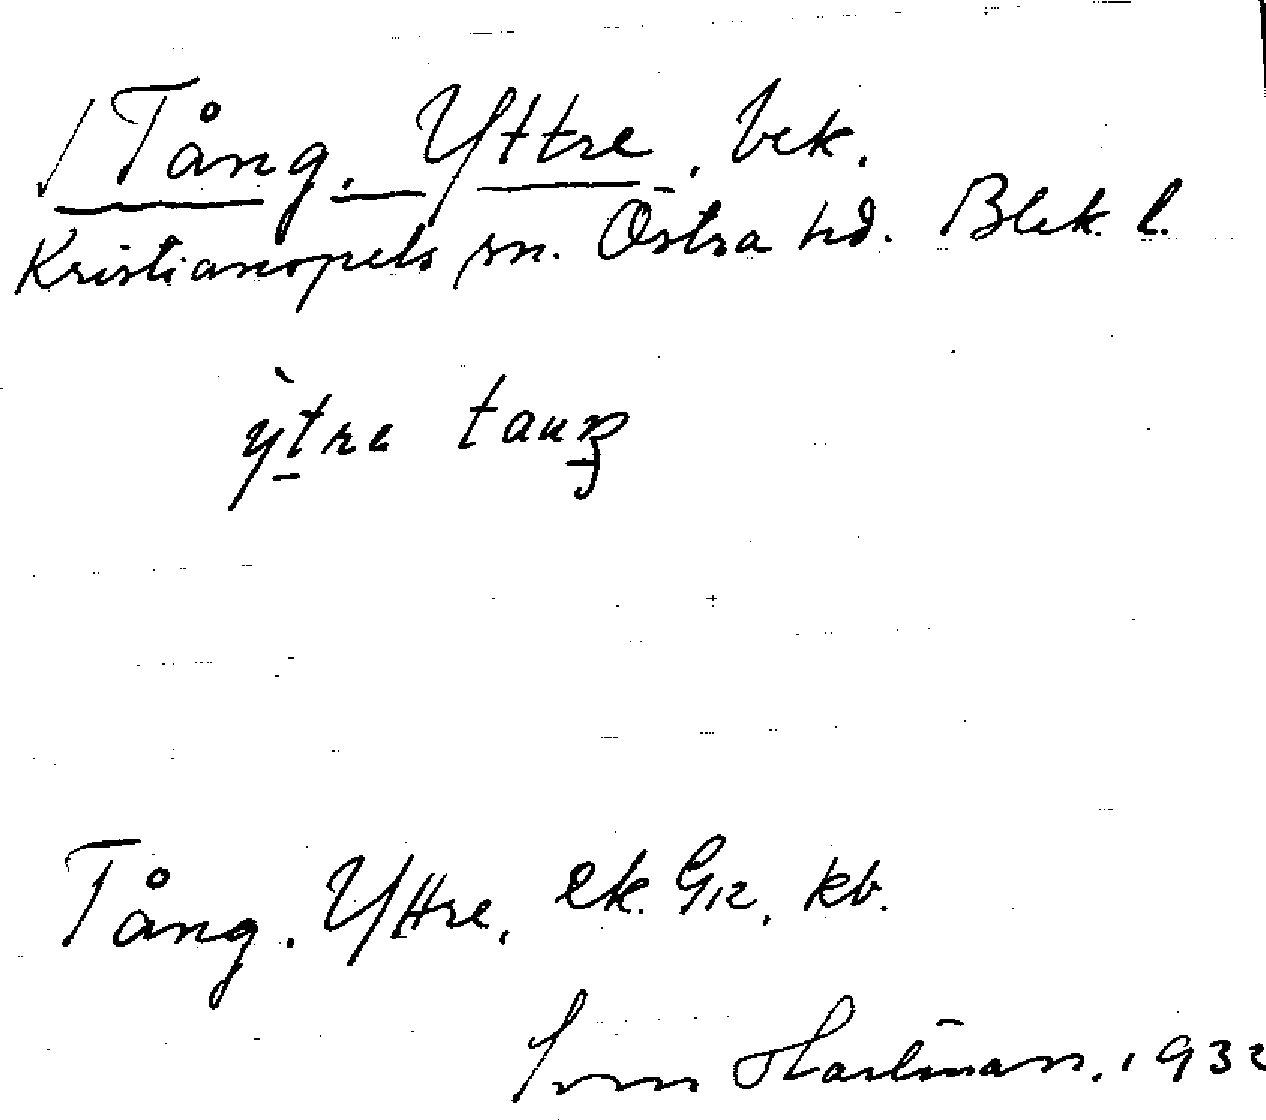 Tång, Yttre, bek.
Kristianopels sn. Östra hd. Blek. l.
ỳtre tauŋ
Tång, Yttre, ek. G12, kb.
Sven Hartman. 1932